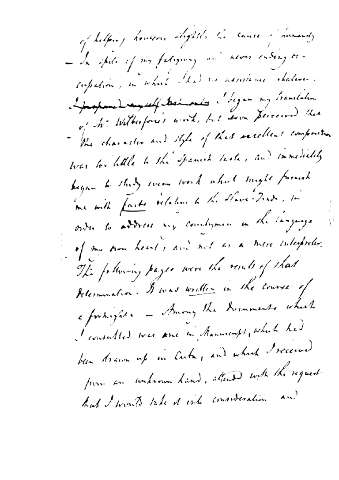 of helping however slightly the cause of humanity
— In spite of my fatiguing and never ending oc-
cupation, in which I had no assistance whatever.
I began my translation
of Mr Wilberforce's work, but soon perceived that
the character and style of that excellent composition
was too little to the Spanish taste, and immediately
began to study every work which might furnish
me with facts relative to the Slave Trade, in
order to address my countrymen in the language
of my own heart, and not as a mere interpreter.
The following pages were the result of that
determination. It was written in the course of
a fortnight — Among the Documents which
I consulted was one in Manuscript, which had
been drawn up in Cuba, and which I received
from an unknown hand, attended with the request
that I would take it into consideration and